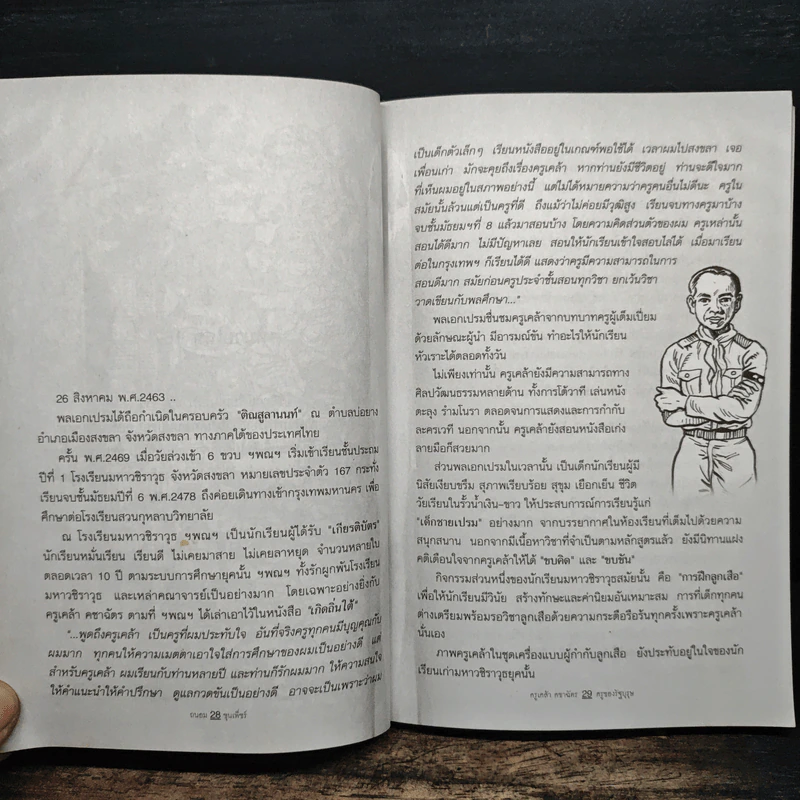 26 สิงหาคม พ.ศ.2463 ..
พลเอกเปรมได้ถือกำเนิดในครอบครัว "ติณสูลานนท์" ณ ตำบลบ่อยาง
อำเภอเมืองสงขลา จังหวัดสงขลา ทางภาคใต้ของประเทศไทย
ครั้น พ.ศ.2469 เมื่อวัยล่วงเข้า 6 ขวบ ฯพณฯ เริ่มเข้าเรียนชั้นประถม
ปีที่ 1 โรงเรียนมหาวชิราวุธ จังหวัดสงขลา หมายเลขประจำตัว 167 กระทั่ง
เรียนจบชั้นมัธยมปีที่ 6 พ.ศ.2478 ถึงค่อยเดินทางเข้ากรุงเทพมหานคร เพื่อ
ศึกษาต่อโรงเรียนสวนกุหลาบวิทยาลัย
ณ โรงเรียนมหาวชิราวุธ ฯพณฯ เป็นนักเรียนผู้ได้รับ "เกียรติบัตร"
นักเรียนหมั่นเรียน เรียนดี ไม่เคยมาสาย ไม่เคยลาหยุด จำนวนหลายใบ
ตลอดเวลา 10 ปี ตามระบบการศึกษายุคนั้น ฯพณฯ ทั้งรักผูกพันโรงเรียน
มหาวชิราวุธ และเหล่าคณาจารย์เป็นอย่างมาก โดยเฉพาะอย่างยิ่งกับ
ครูเคล้า คชาฉัตร ตามที่ ฯพณฯ ได้เล่าเอาไว้ในหนังสือ "เกิดถิ่นใต้"
"...พูดถึงครูเคล้า เป็นครูที่ผมประทับใจ อันที่จริงครูทุกคนมีบุญคุณกับ
ผมมาก ทุกคนให้ความเมตตาเอาใจใส่การศึกษาของผมเป็นอย่างดี แต่
สำหรับครูเคล้า ผมเรียนกับท่านหลายปี และท่านก็รักผมมาก ให้ความสนใจ
ให้คำแนะนำให้คำปรึกษา ดูแลกวดขันเป็นอย่างดี อาจจะเป็นเพราะว่าผม
ถนอม 28 ขุนเพ็ชร์
เป็นเด็กตัวเล็กๆ เรียนหนังสืออยู่ในเกณฑ์พอใช้ได้ เวลาผมไปสงขลา เจอ
เพื่อนเก่า มักจะคุยถึงเรื่องครูเคล้า หากท่านยังมีชีวิตอยู่ ท่านจะดีใจมาก
ที่เห็นผมอยู่ในสภาพอย่างนี้ แต่ไม่ได้หมายความว่าครูคนอื่นไม่ดีนะ ครูใน
สมัยนั้นล้วนแต่เป็นครูที่ดี ถึงแม้ว่าไม่ค่อยมีวุฒิสูง เรียนจบทางครูมาบ้าง
จบชั้นมัธยมฯที่ 8 แล้วมาสอนบ้าง โดยความคิดส่วนตัวของผม ครูเหล่านั้น
สอนได้ดีมาก ไม่มีปัญหาเลย สอนให้นักเรียนเข้าใจสอบไล่ได้ เมื่อมาเรียน
ต่อในกรุงเทพฯ ก็เรียนได้ดี แสดงว่าครูมีความสามารถในการ
สอนดีมาก สมัยก่อนครูประจำชั้นสอนทุกวิชา ยกเว้นวิชา
วาดเขียนกับพลศึกษา..."
พลเอกเปรมชื่นชมครูเคล้าจากบทบาทครูผู้เต็มเปี่ยม
ด้วยลักษณะผู้นำ มีอารมณ์ขัน ทำอะไรให้นักเรียน
หัวเราะได้ตลอดทั้งวัน
ไม่เพียงเท่านั้น ครูเคล้ายังมีความสามารถทาง
ศิลปวัฒนธรรมหลายด้าน ทั้งการโต้วาที เล่นหนัง
ตะลุง ร่ามโนรา ตลอดจนการแสดงและการกำกับ
ละครเวที นอกจากนั้น ครูเคล้ายังสอนหนังสือเก่ง
ลายมือก็สวยมาก
ส่วนพลเอกเปรมในเวลานั้น เป็นเด็กนักเรียนผู้มี
นิสัยเงียบขรึม สุภาพเรียบร้อย สุขุม เยือกเย็น ชีวิต
วัยเรียนในรั้วน้ำเงิน-ขาว ให้ประสบการณ์การเรียนรู้แก่
"เด็กชายเปรม" อย่างมาก จากบรรยากาศในห้องเรียนที่เต็มไปด้วยความ
สนุกสนาน นอกจากมีเนื้อหาวิชาที่จำเป็นตามหลักสูตรแล้ว ยังมีนิทานแฝง
คติเตือนใจจากครูเคล้าให้ได้ "ขบคิด" และ "ขบขัน"
กิจกรรมส่วนหนึ่งของนักเรียนมหาวชิราวุธสมัยนั้น คือ "การฝึกลูกเสือ"
เพื่อให้นักเรียนมีวินัย สร้างทักษะและค่านิยมอันเหมาะสม การที่เด็กทุกคน
ต่างเตรียมพร้อมรอวิชาลูกเสือด้วยความกระตือรือร้นทุกครั้งเพราะครูเคล้า
นั่นเอง
ภาพครูเคล้าในชุดเครื่องแบบผู้กำกับลูกเสือ ยังประทับอยู่ในใจของนัก
เรียนเก่ามหาวชิราวุธยุคนั้น
ครูเคล้า คชาฉัตร 29 ครูของรัฐบุรุษ